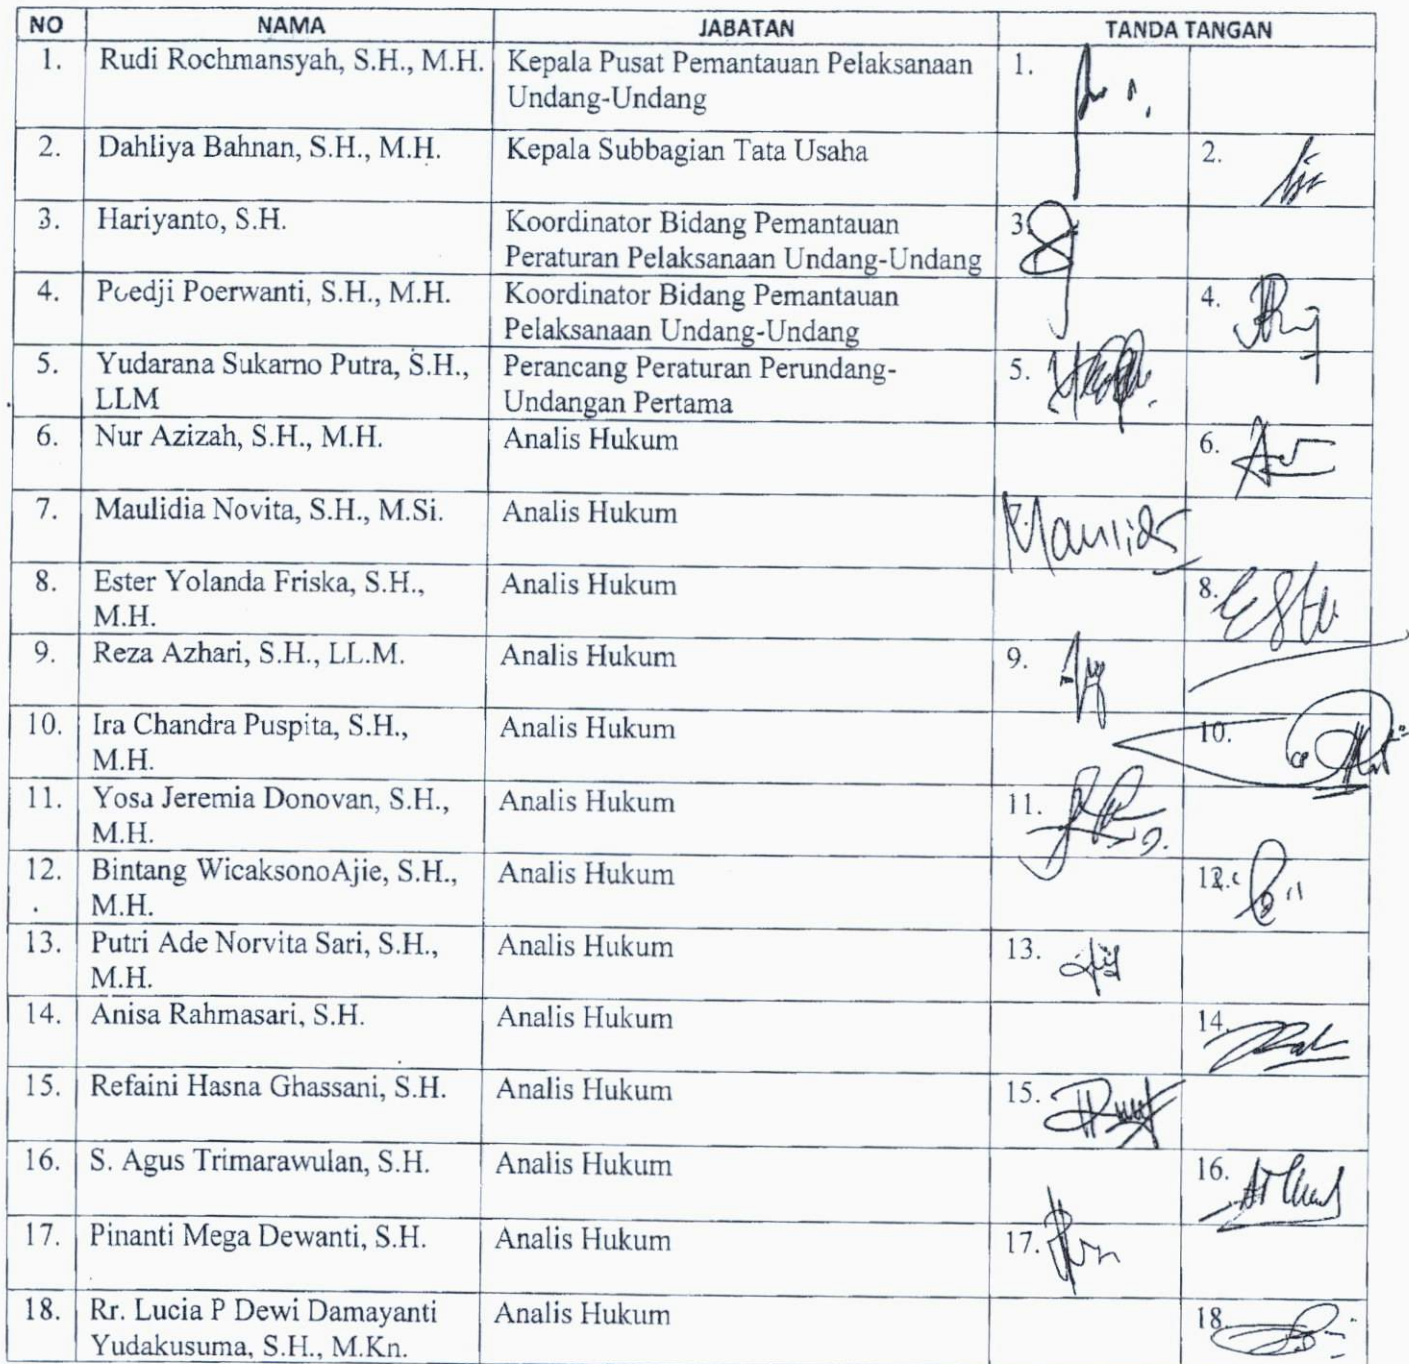 NO NAMA JABATAN TANDA TANGAN
1. Rudi Rochmansyah, S.H., M.H. Kepala Pusat Pemantauan Pelaksanaan 1.
Undang-Undang
2. Dahliya Bahnan, S.H., M.H. Kepala Subbagian Tata Usaha 2.
3. Hariyanto, S.H. Koordinator Bidang Pemantauan 3.
Peraturan Pelaksanaan Undang-Undang
4. Poedji Poerwanti, S.H., M.H. Koordinator Bidang Pemantauan 4.
Pelaksanaan Undang-Undang
5. Yudarana Sukarno Putra, S.H., Perancang Peraturan Perundang- 5.
LLM Undangan Pertama
6. Nur Azizah, S.H., M.H. Analis Hukum 6.
7. Maulidia Novita, S.H., M.Si. Analis Hukum
8. Ester Yolanda Friska, S.H., Analis Hukum 8.
M.H.
9. Reza Azhari, S.H., LL.M. Analis Hukum 9.
10. Ira Chandra Puspita, S.H., Analis Hukum 10.
M.H.
11. Yosa Jeremia Donovan, S.H., Analis Hukum 11.
M.H.
12. Bintang WicaksonoAjie, S.H., Analis Hukum 12.
M.H.
13. Putri Ade Norvita Sari, S.H., Analis Hukum 13.
M.H.
14. Anisa Rahmasari, S.H. Analis Hukum 14.
15. Refaini Hasna Ghassani, S.H. Analis Hukum 15.
16. S. Agus Trimarawulan, S.H. Analis Hukum 16.
17. Pinanti Mega Dewanti, S.H. Analis Hukum 17.
18. Rr. Lucia P Dewi Damayanti Analis Hukum 18.
Yudakusuma, S.H., M.Kn.